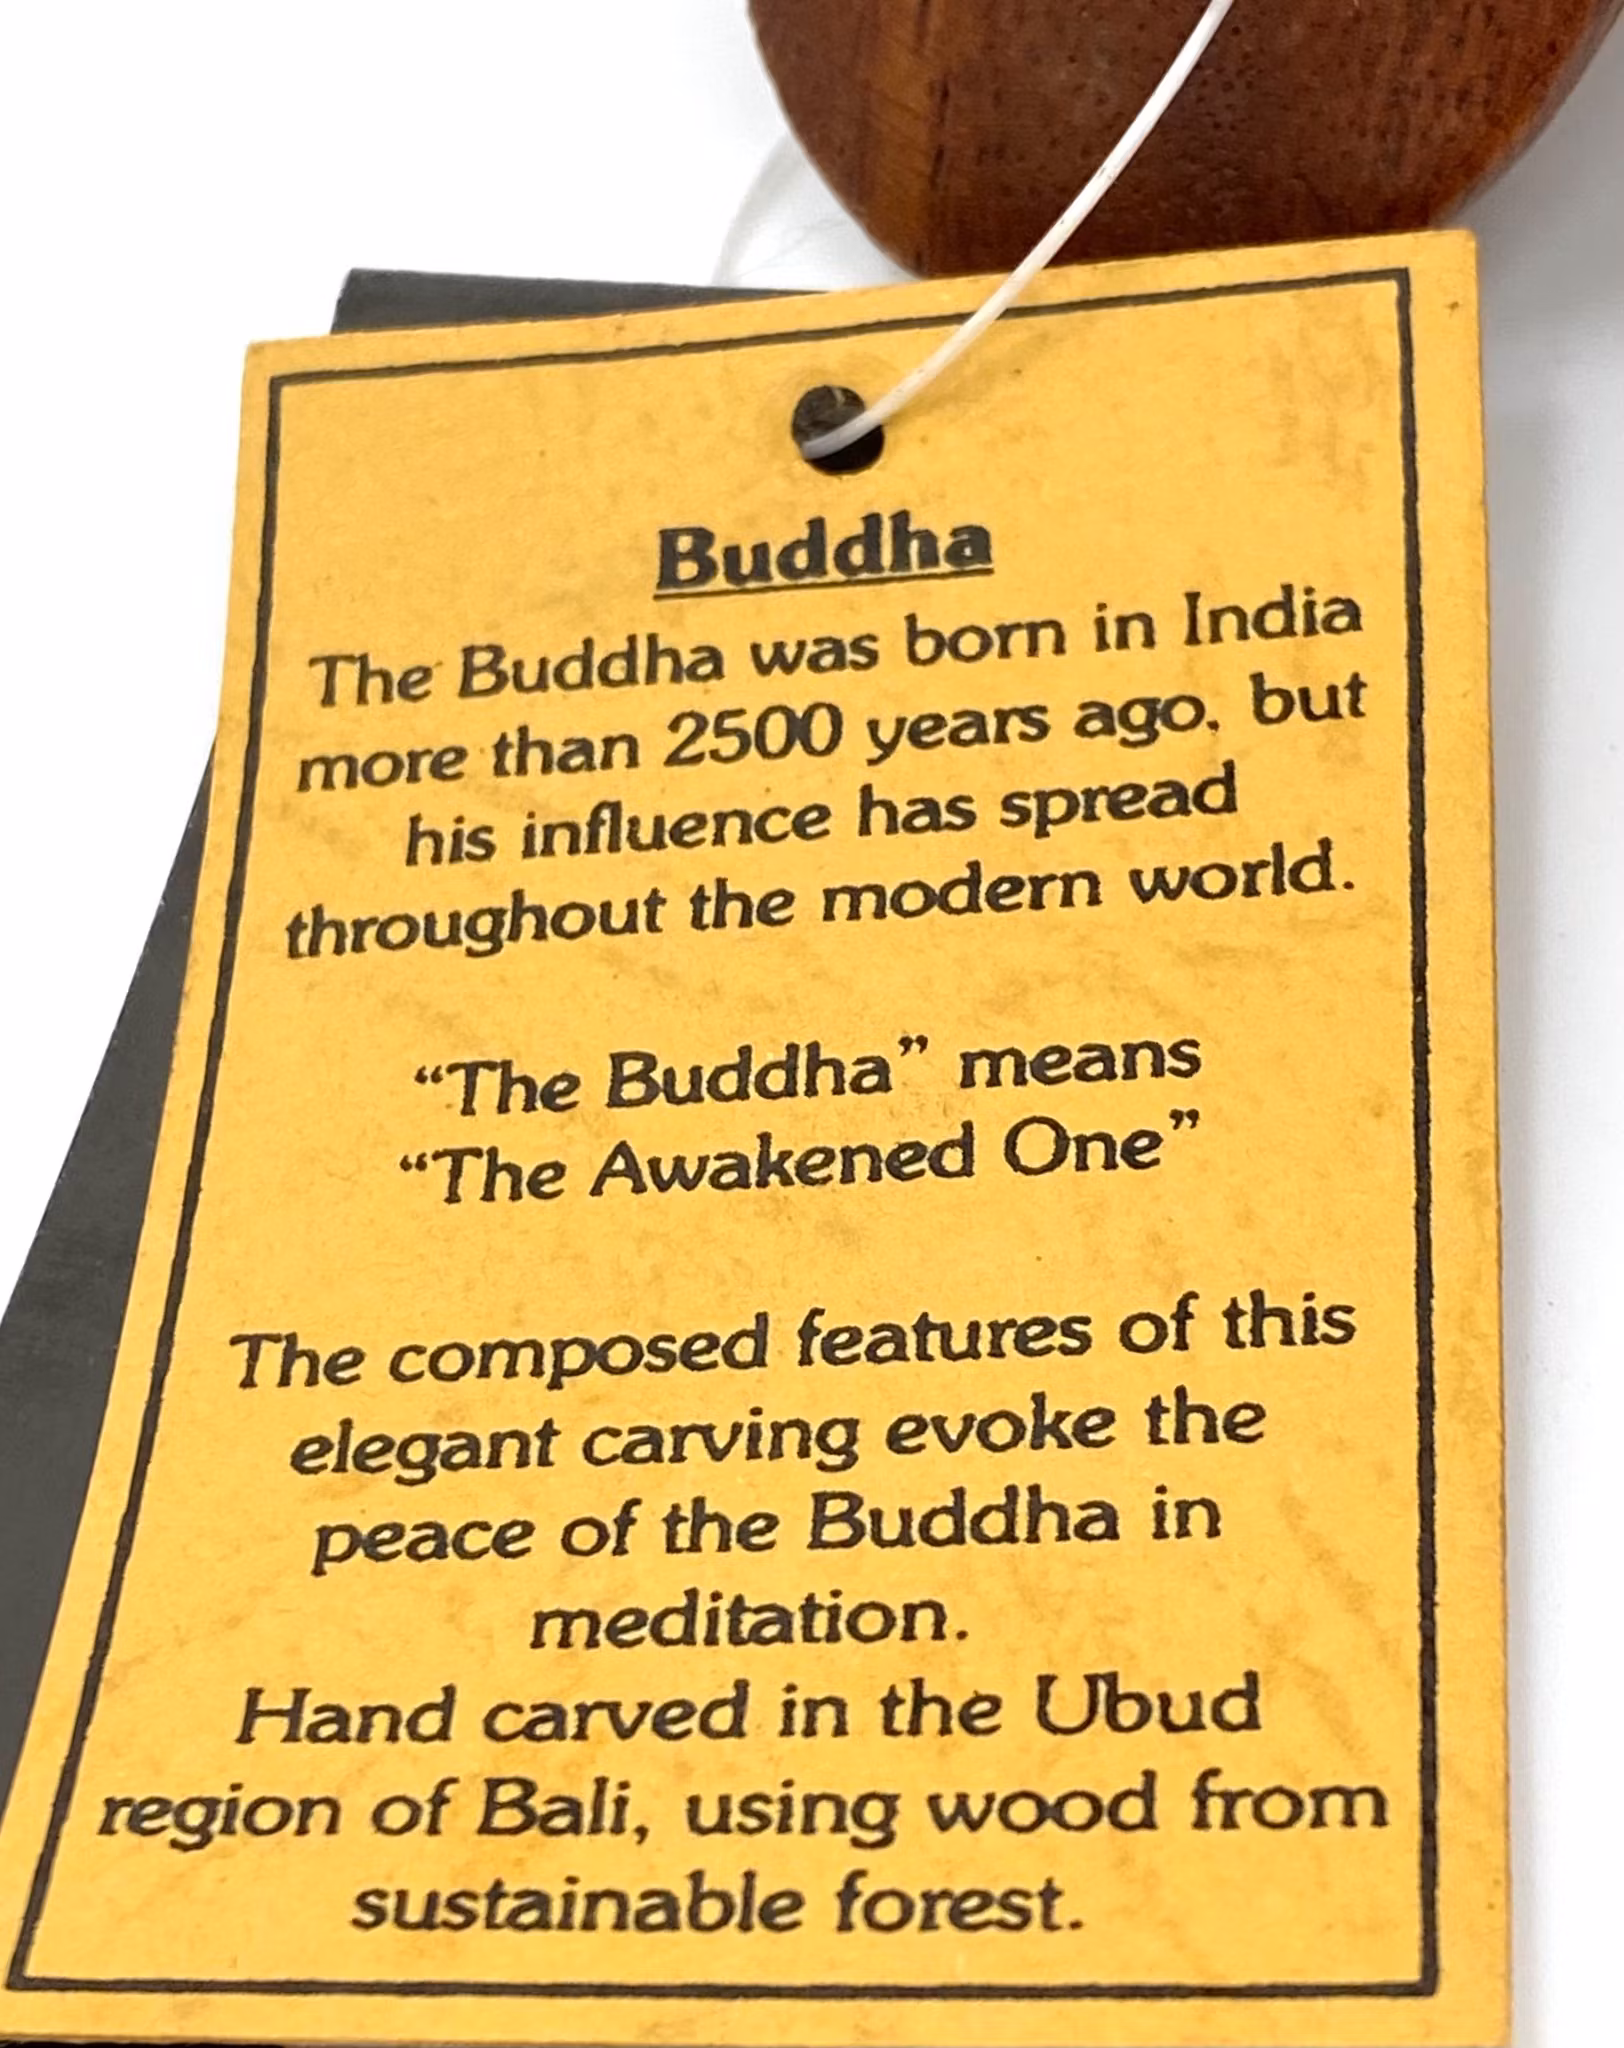 Buddha
The Buddha was born in India
more than 2500 years ago, but
his influence has spread
throughout the modern world.
“The Buddha” means
“The Awakened One”
The composed features of this
elegant carving evoke the
peace of the Buddha in
meditation.
Hand carved in the Ubud
region of Bali, using wood from
sustainable forest.